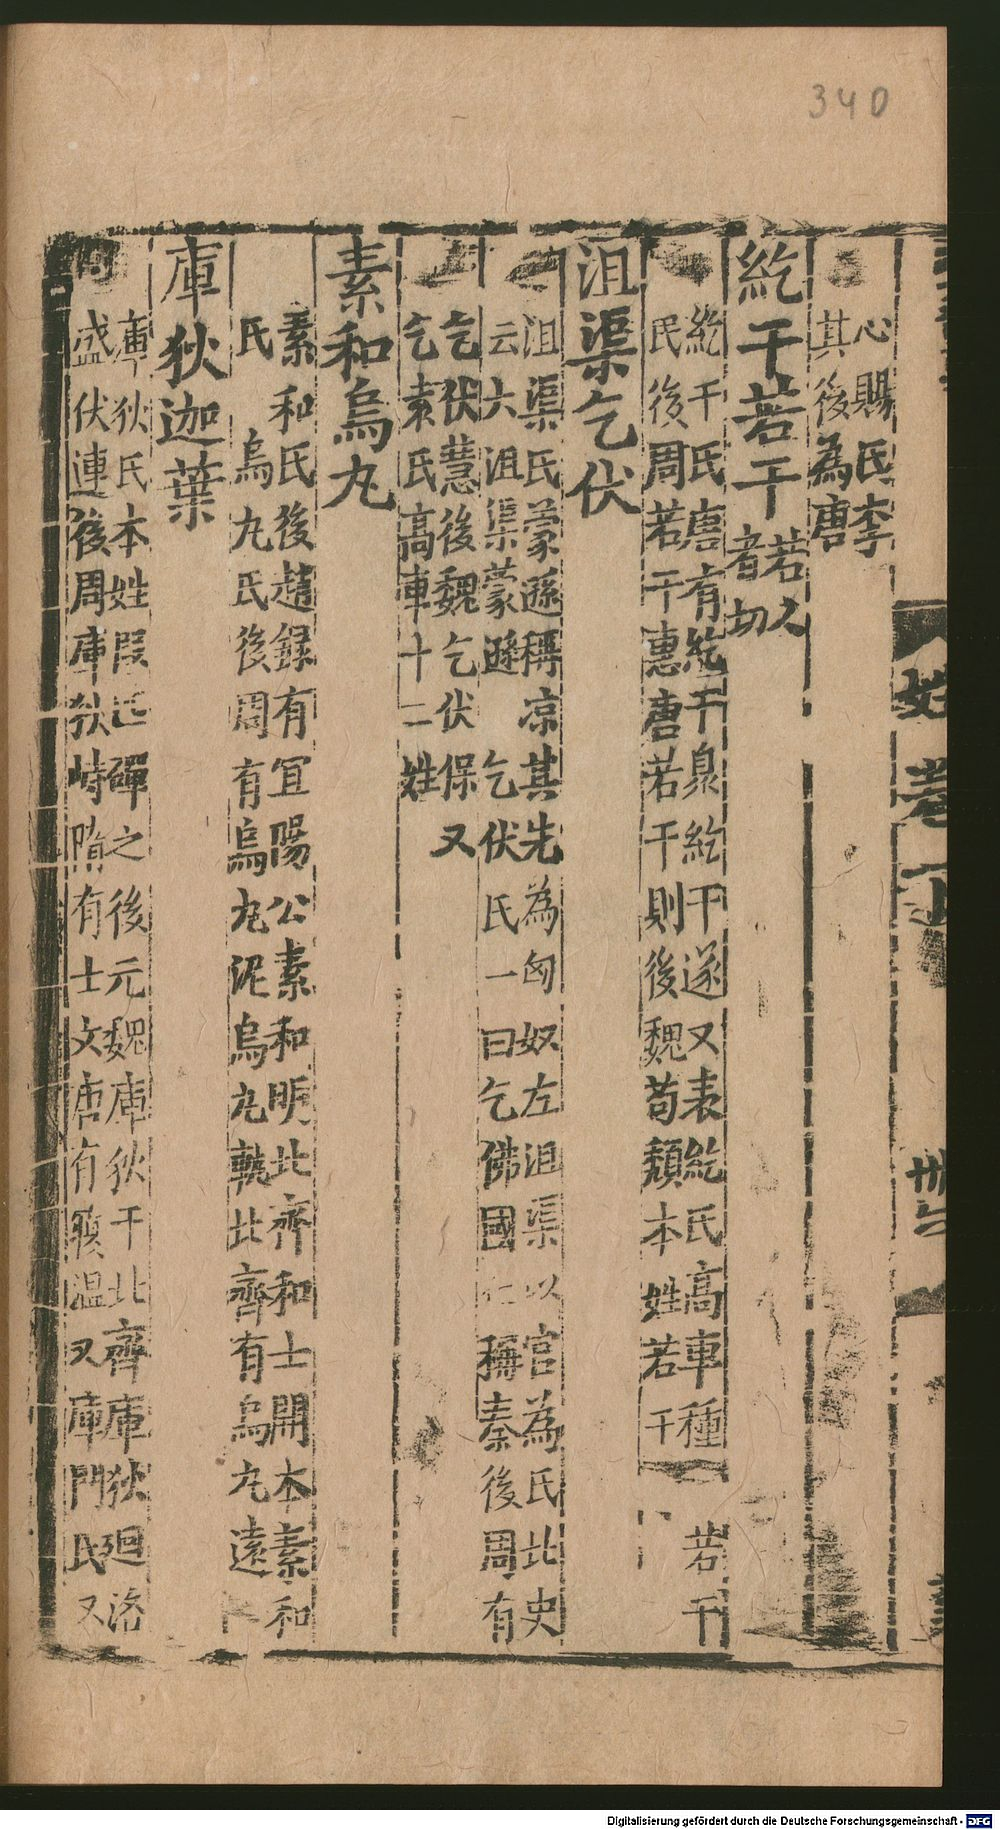 340
心賜氏李
其後為唐
紇干若干若人
者切
紇干氏唐有紇干臮紇干遂又表紇氏高車種 若干
氏後周若干惠唐若干則後魏苟頹本姓若干
沮渠乞伏
沮渠氏蒙遜稱凉其先為匈奴左沮渠以官為氏北史
云大沮渠蒙遜 乞伏氏一曰乞佛國仁稱秦後周有
乞伏慧後魏乞伏保又
乞素氏高車十二姓
素和烏丸
素和氏後趙録有宜陽公素和明北齊和士開本素和
氏 烏丸氏後周有烏丸泥烏丸軌北齊有烏丸遠
庫狄迦葉
庫狄氏本姓段匹磾之後元魏庫狄干北齊庫狄廻洛
盛伏連後周庫狄峙隋有士文唐有嶔温又庫門氏又
姓卷
Digitalisierung gefördert durch die Deutsche Forschungsgemeinschaft - DFG